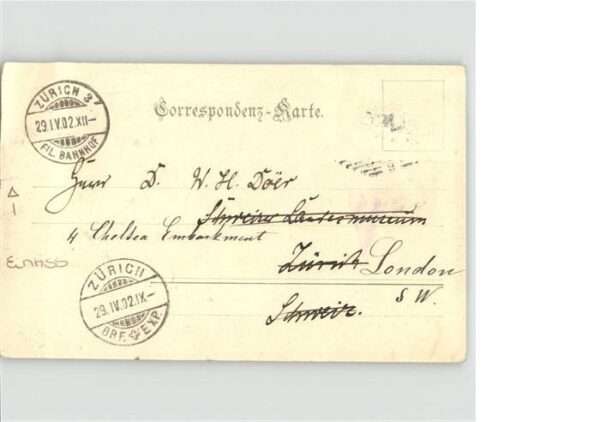 ZÜRICH 3
29.IV.02.XII–
FIL. BAHNHOF
Correspondenz-Karte.
Herr D. W. H. Döer
Schweizer Landesmuseum
4 Chelsea Embankment
Zürich London
S W.
Schweiz.
ZÜRICH
29.IV.02.IX–
BRF. EXP.